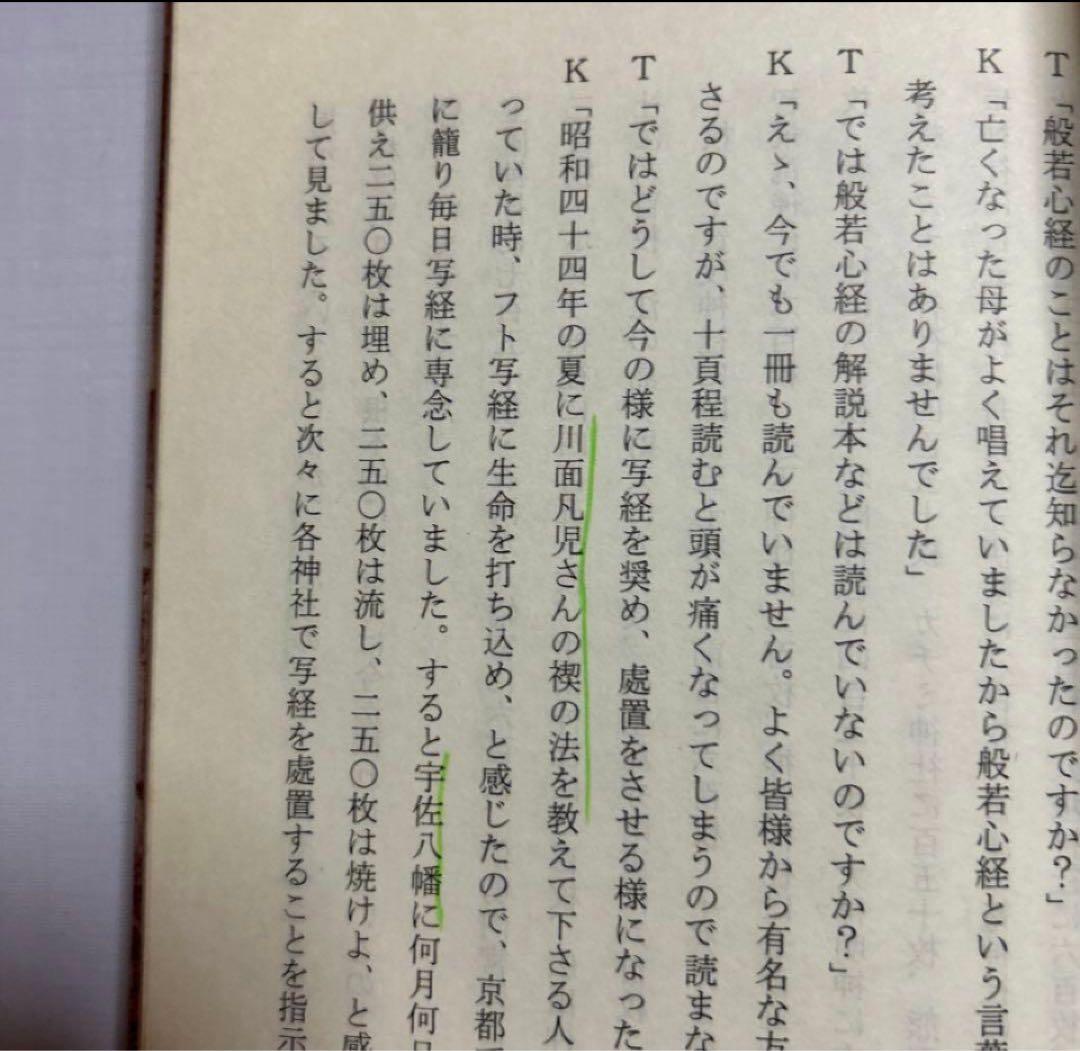 T「般若心経のことはそれ迄知らなかったのですか?」
K「亡くなった母がよく唱えていましたから般若心経という言葉
考えたことはありませんでした」
T「では般若心経の解説本などは読んでいないのですか?」
K「えゝ、今でも一冊も読んでいません。よく皆様から有名な方
さるのですが、十頁程読むと頭が痛くなってしまうので読まな
T「ではどうして今の様に写経を奨め、處置をさせる様になった
K「昭和四十四年の夏に川面凡児さんの禊の法を教えて下さる人
っていた時、フト写経に生命を打ち込め、と感じたので、京都
に籠り毎日写経に専念していました。すると宇佐八幡に何月何日
供え二五〇枚は埋め、二五〇枚は流し、二五〇枚は焼けよ、と感
して見ました。すると次々に各神社で写経を處置することを指示